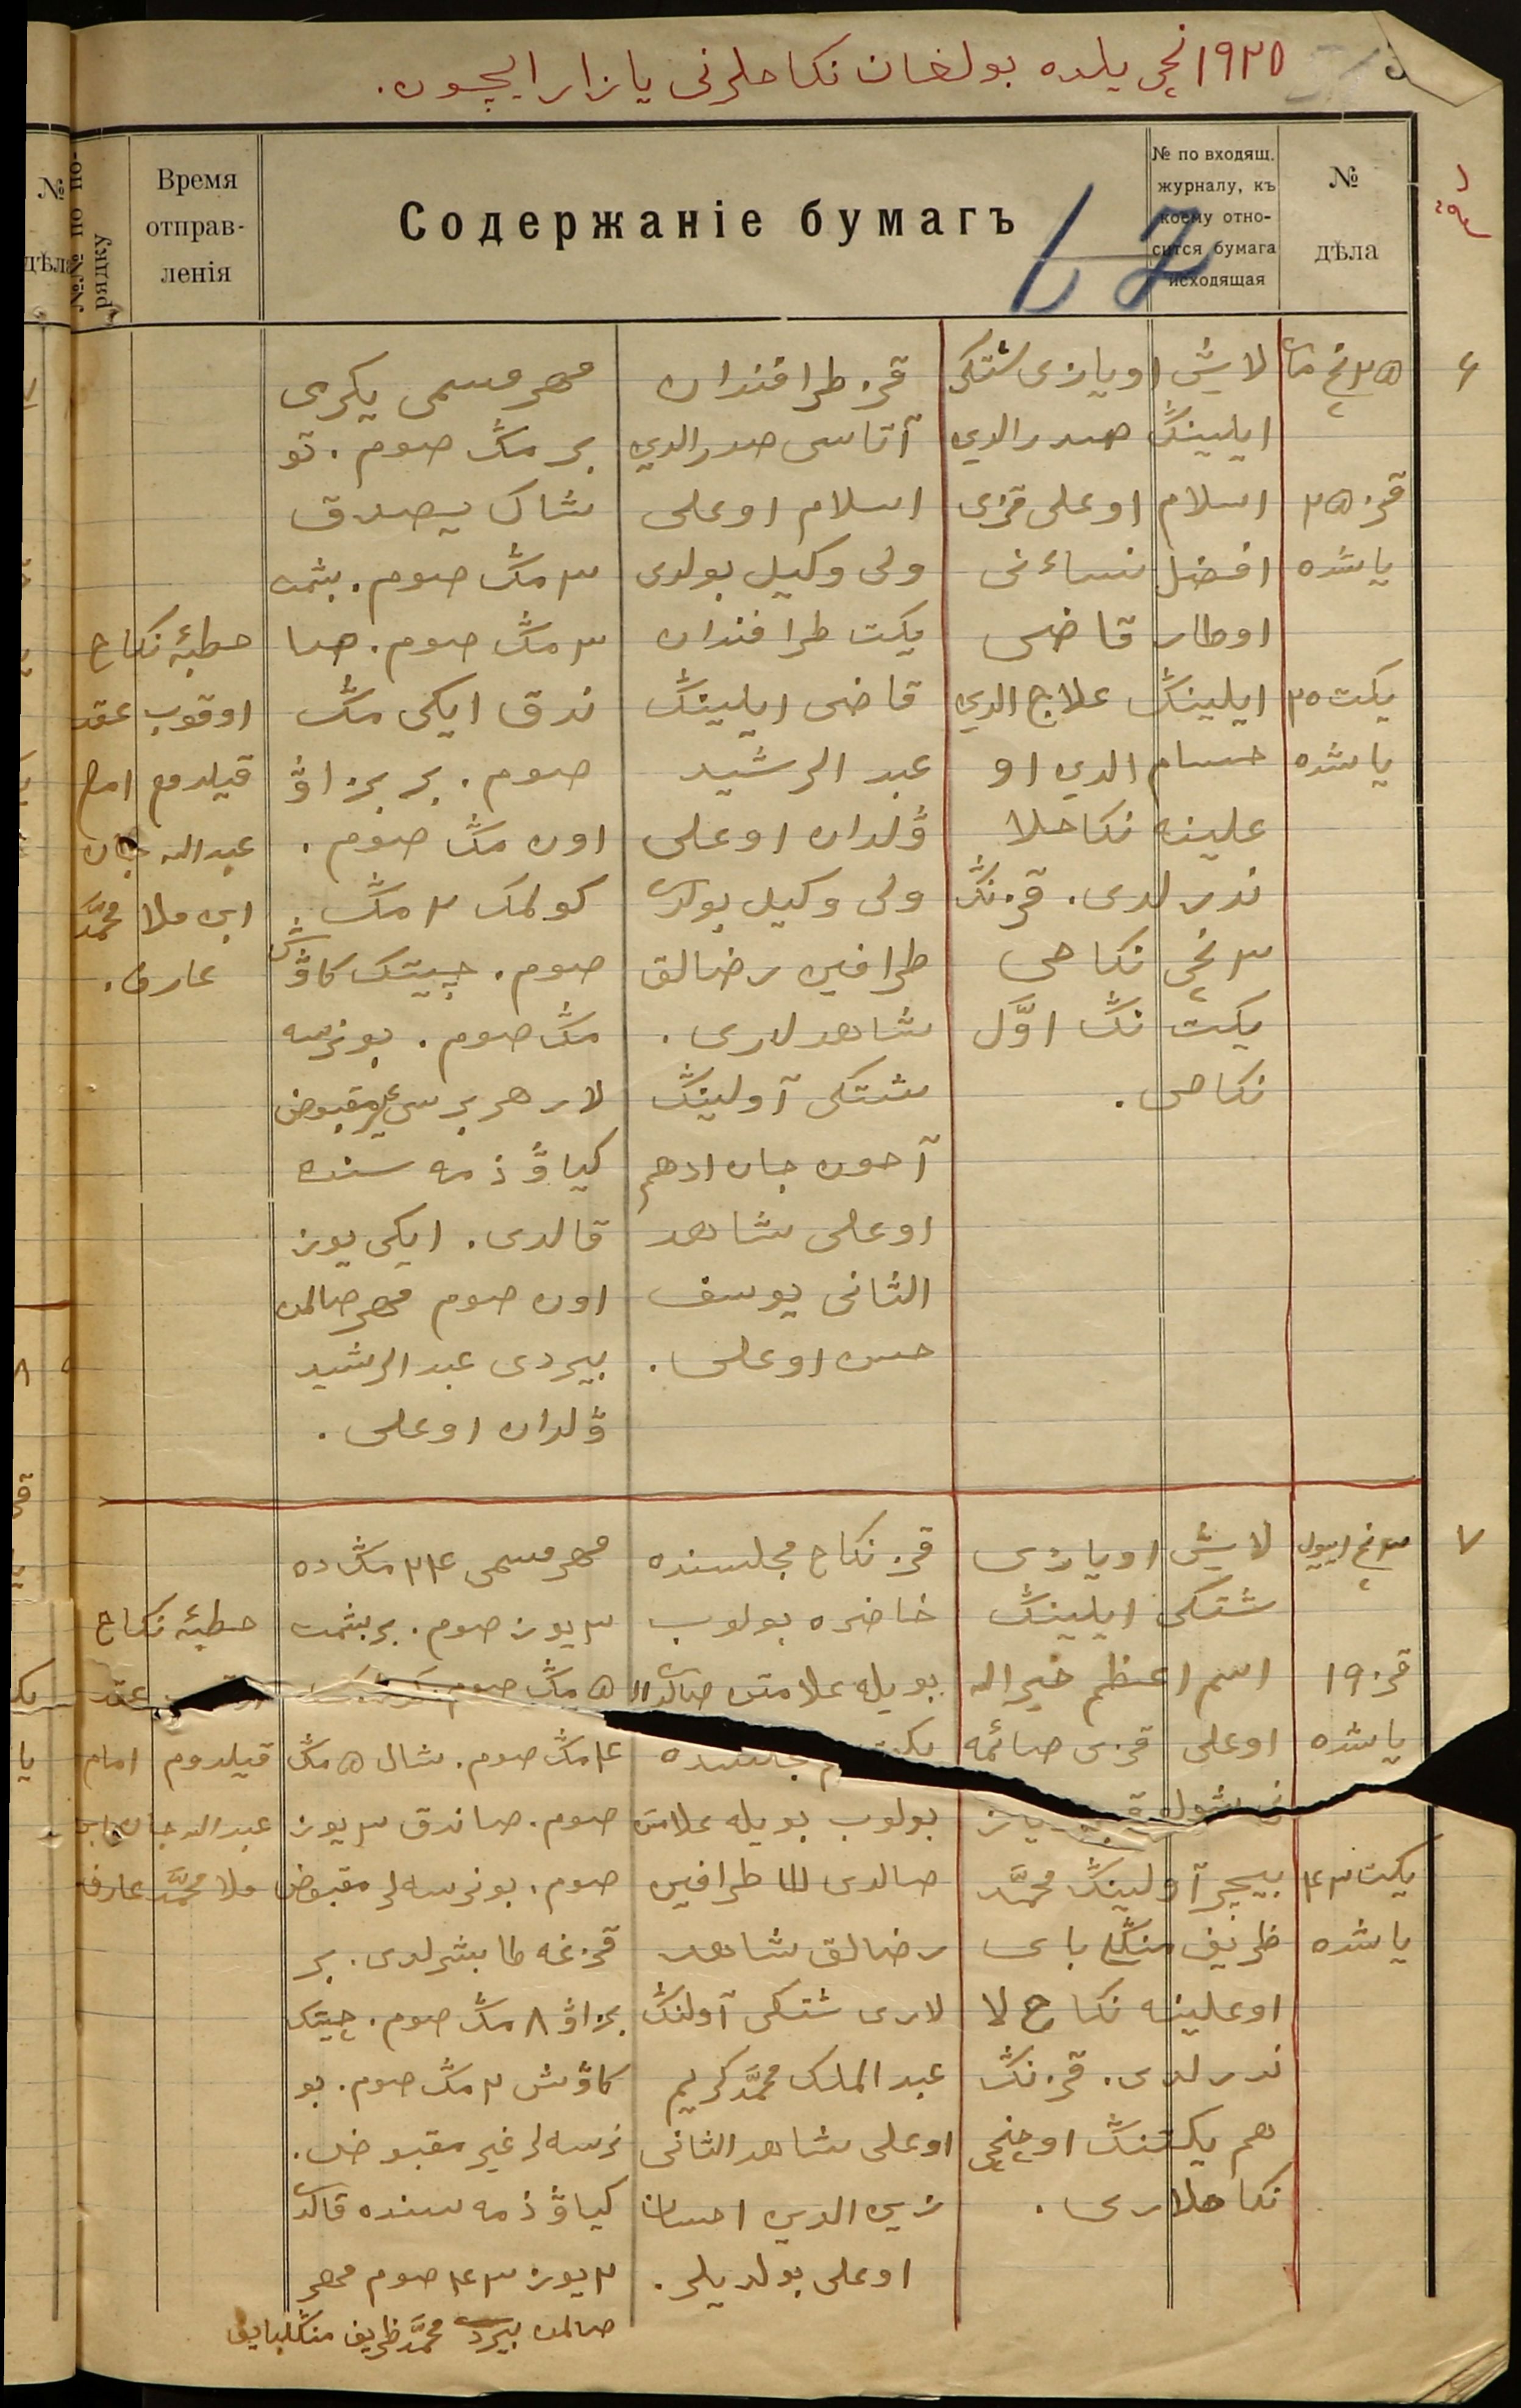 ١٩٢٥نچی یلده بولغان نکاحلرنی یازار ایچون.
№ дѣла
№ по входящ. журналу, къ коему отно-
сится бумага исходящая
Содержаніе бумагъ
Время отправ-
ленія
№№ по по-
рядку
№
дѣла
٦
قز ٢٥
یاشده
یکت ٢٥
یاشده
لایش اویازی شتکی
ایلینڭ صدر الدین
اسلام اوغلی قزی
افضل نساءنی
اوطار قاضی
ایلینڭ علاج الدین
حسام الدین او
غلینه نکاحلا
ندرلدی. قزنڭ
٣نچی نکاحی
یکت نڭ اوّل
نکاحی.
قز طرافندان
آتاسی صدر الدین
اسلام اوغلی
ولی وکیل بولدی
یکت طرافندان
قاضی ایلینڭ
عبد الرشید
ۋلدان اوغلی
ولی وکیل بولدی
طرافین رضالق
شاهدلاری.
شتکی آولینڭ
آخون جان ادهم
اوغلی شاهد
الثانی یوسف
حسن اوغلی.
مهر مسمی یکرمی
بر مڭ صوم. تو
شاك یصدق
٣ مڭ صوم.
٣ مڭ صوم. صا
ندق ایکی مڭ
صوم. بر بزاۋ
اون مڭ صوم.
کولمك ٢ مڭ
صوم. چیتك کاۋش
مڭ صوم. بو نرسه
لار هر برسی غیر مقبوض
کیاۋ ذمه سنده
قالدی. ایکی یوز
اون صوم مهر صالمن
بیردی عبد الرشید
ۋلدان اوغلی.
خطبۀ نکاح
اوقوب عقد
قیلدم امام
عبد الله جان
ابن ملا محمّد
عارف.
٧
٣نچی ایول
قز ١٩
یاشده
یکت ٢٣
یاشده
لایش اویازی
شتکی ایلینڭ
اسم اعظم خیر الله
اوغلی قزی صائمه
بیجر آولینڭ محمّد
ظریف منڭلی بای
اوغلینه نکاح لا
ندرلدی. قزنڭ
هم یکتنڭ اوچنچی
نکاحلاری.
قز نکاح مجلسنده
خاضره بولوب
بویله علامتن صالدی III
بولوب بویله علامتن
صالدی III طرافین
رضالق شاهد
لاری شتکی آولنڭ
عبد الملك محمّد کریم
اوغلی شاهد الثانی
زین الدین احسان
اوغلی بولدیلر.
مهر مسمی ٢٤ مڭ ده
٣ یوز صوم.
٥ مڭ صوم.
٤ مڭ صوم. شال ٥ مڭ
صوم. صاندق ٣ یوز
صوم. بو نرسه لر مقبوض
قزغه طابشرلدی. بر
بزاۋ ٨ مڭ صوم. چیتك
کاۋش ٢ مڭ صوم. بو
نرسه لر غیر مقبوض.
کیاۋ ذمه سنده قالدی
٢ یوز ٤٣ صوم مهر
صالمن بیردی محمّد ظریف منڭلیبایف
خطبۀ نکاح
عقد
قیلدوم امام
عبد الله جان ابن
ملا محمّد عارف